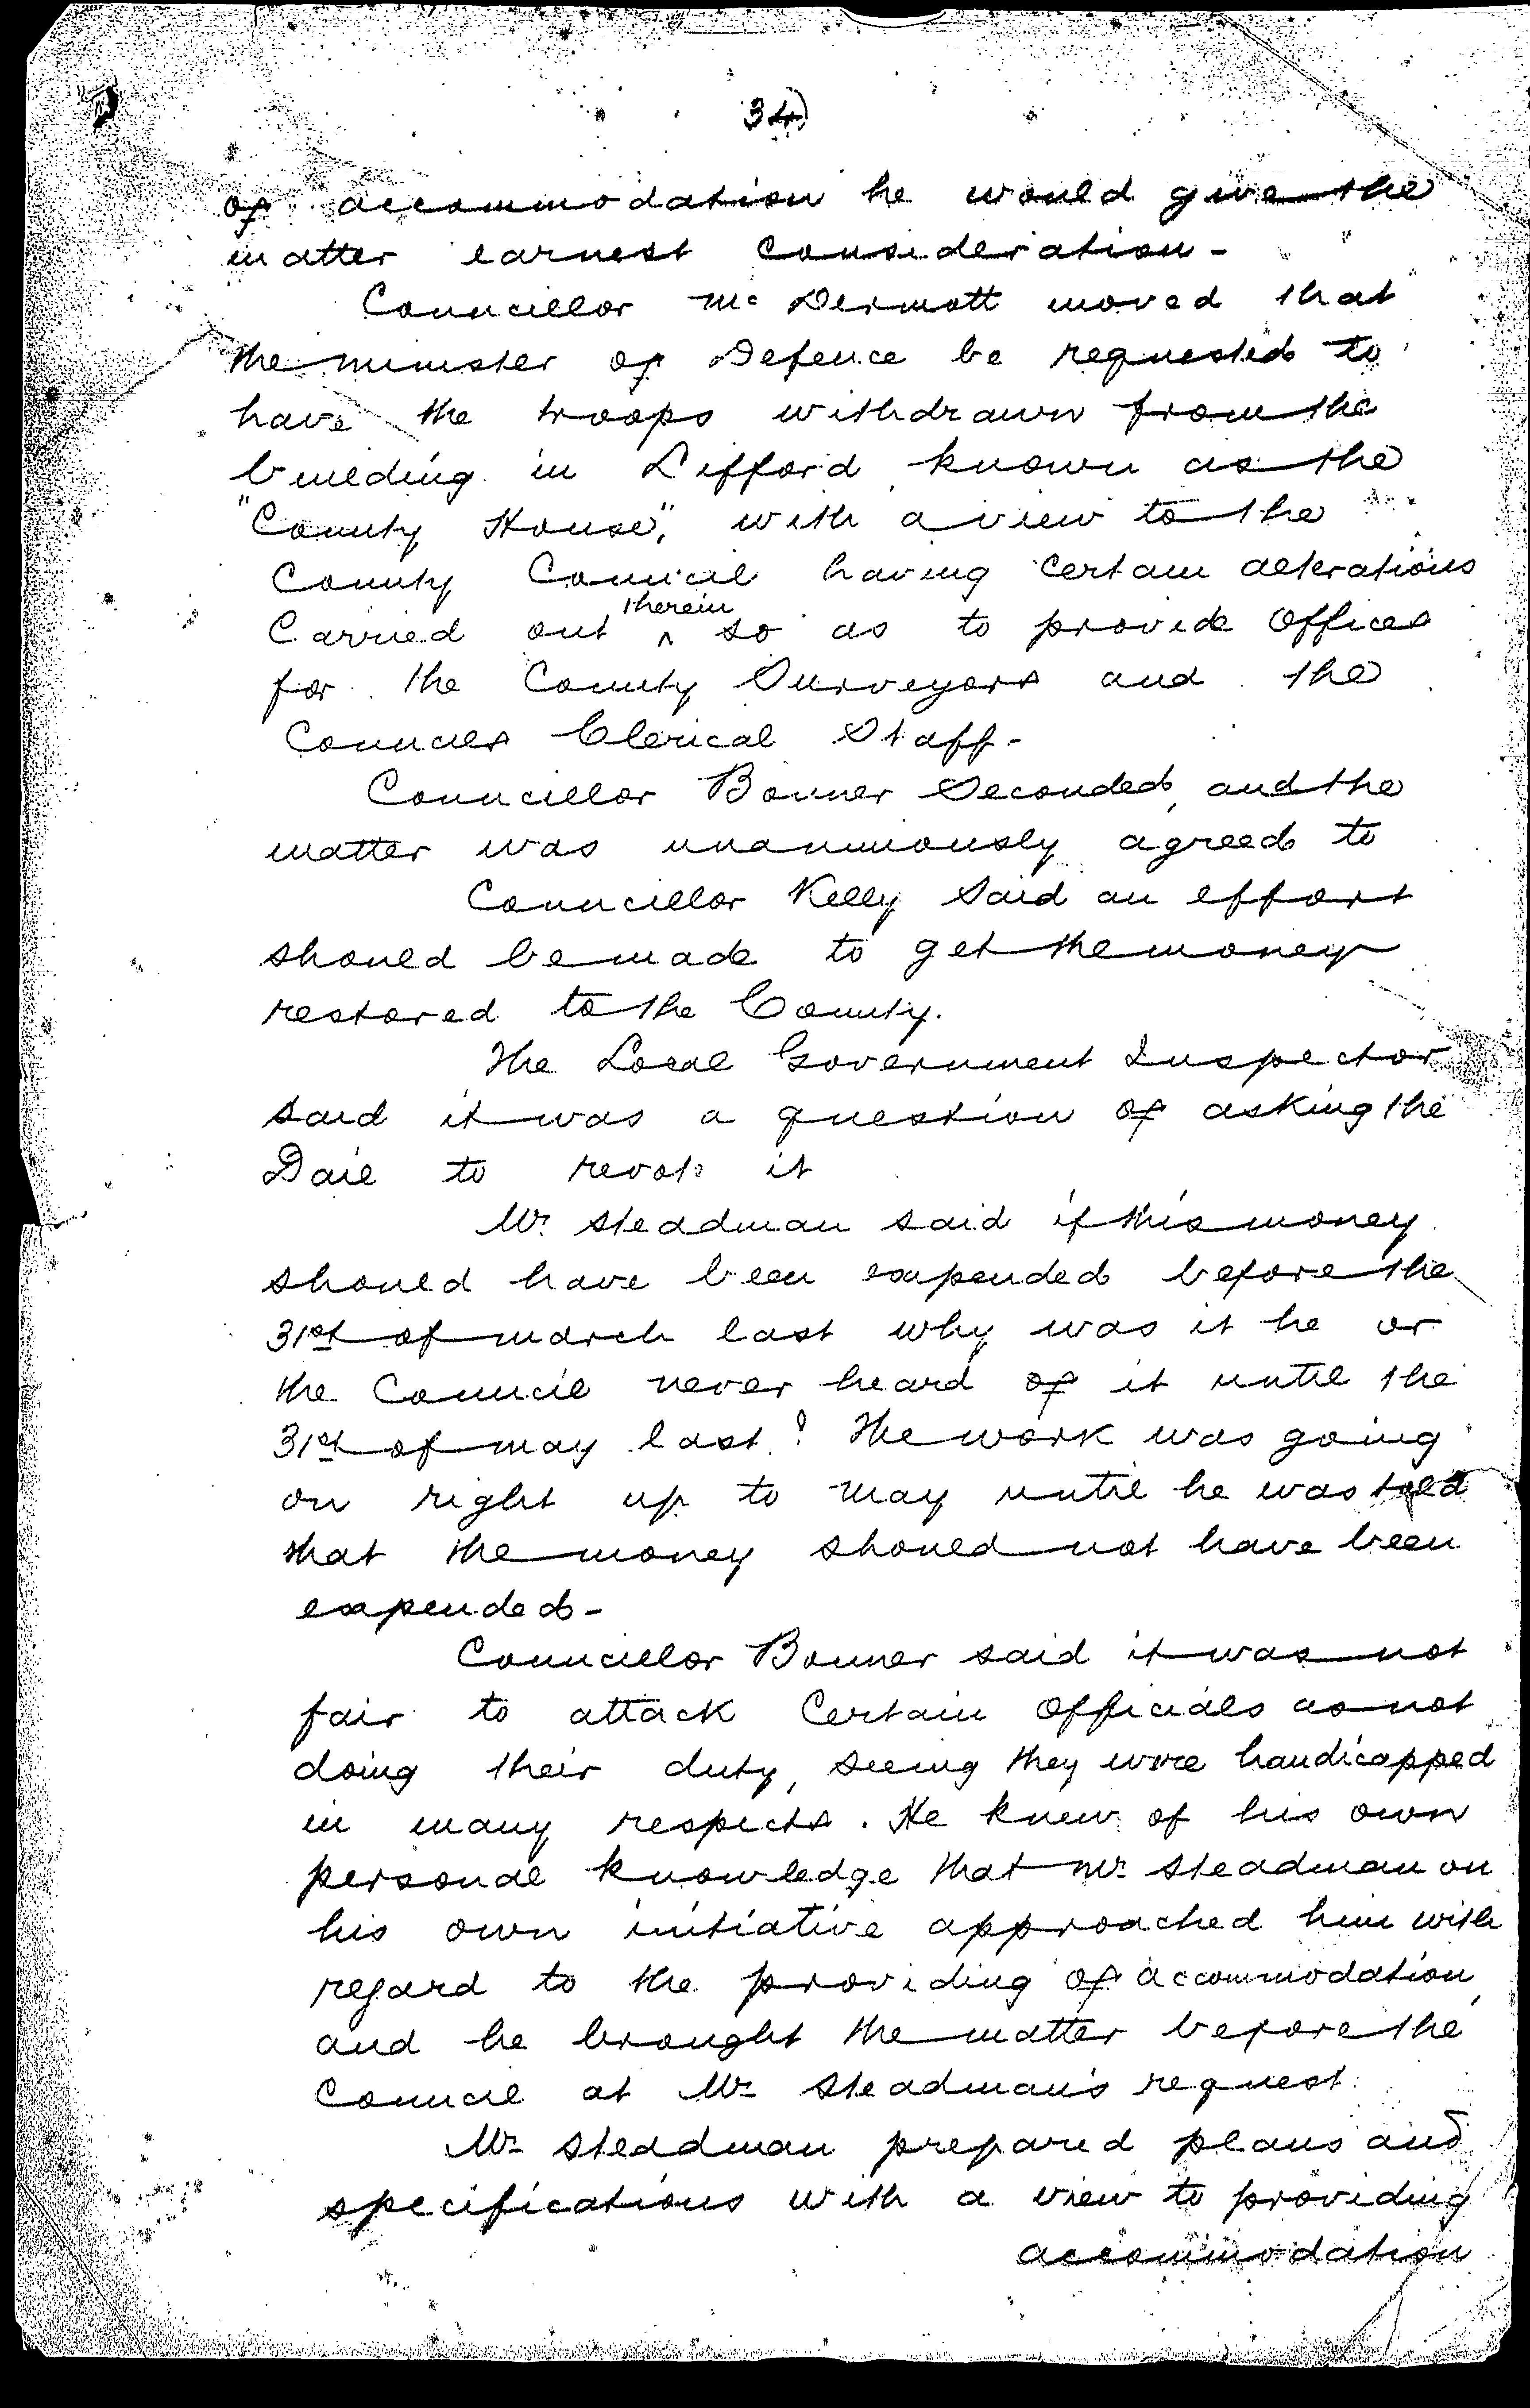 34)
of accommodation he would give the
matter earnest consideration -
Councillor McDermott moved that
the minister of Defence be requested to
have the troops withdrawn from the
building in Lifford known as the
"County House", with a view to the
County Council having certain alterations
Carried out therein so as to provide Offices
for the County Surveyors and the
Councils Clerical Staff -
Councillor Bonner Seconded, and the
matter was unanimously agreed to
Councillor Kelly said an effort
should be made to get the money
restored to the County.
The Local Government Inspector
said it was a question of asking the
Dail to it
Mr. Steadman said if this money
should have been expended before the
31st of march last why was it he or
the Council never heard of it until the
31st of may last? The work was going
on right up to May until he was told
that the money should not have been
expended -
Councillor Bonner said it was not
fair to attack Certain Officials as not
doing their duty, seeing they were handicapped
in many respects. He knew of his own
personal knowledge that Mr. Steadman on
his own initiative approached him with
regard to the providing of accommodation,
and he brought the matter before the
Council at Mr. Steadman's request.
Mr. Steadman prepared plans and
specifications with a view to providing
accommodation